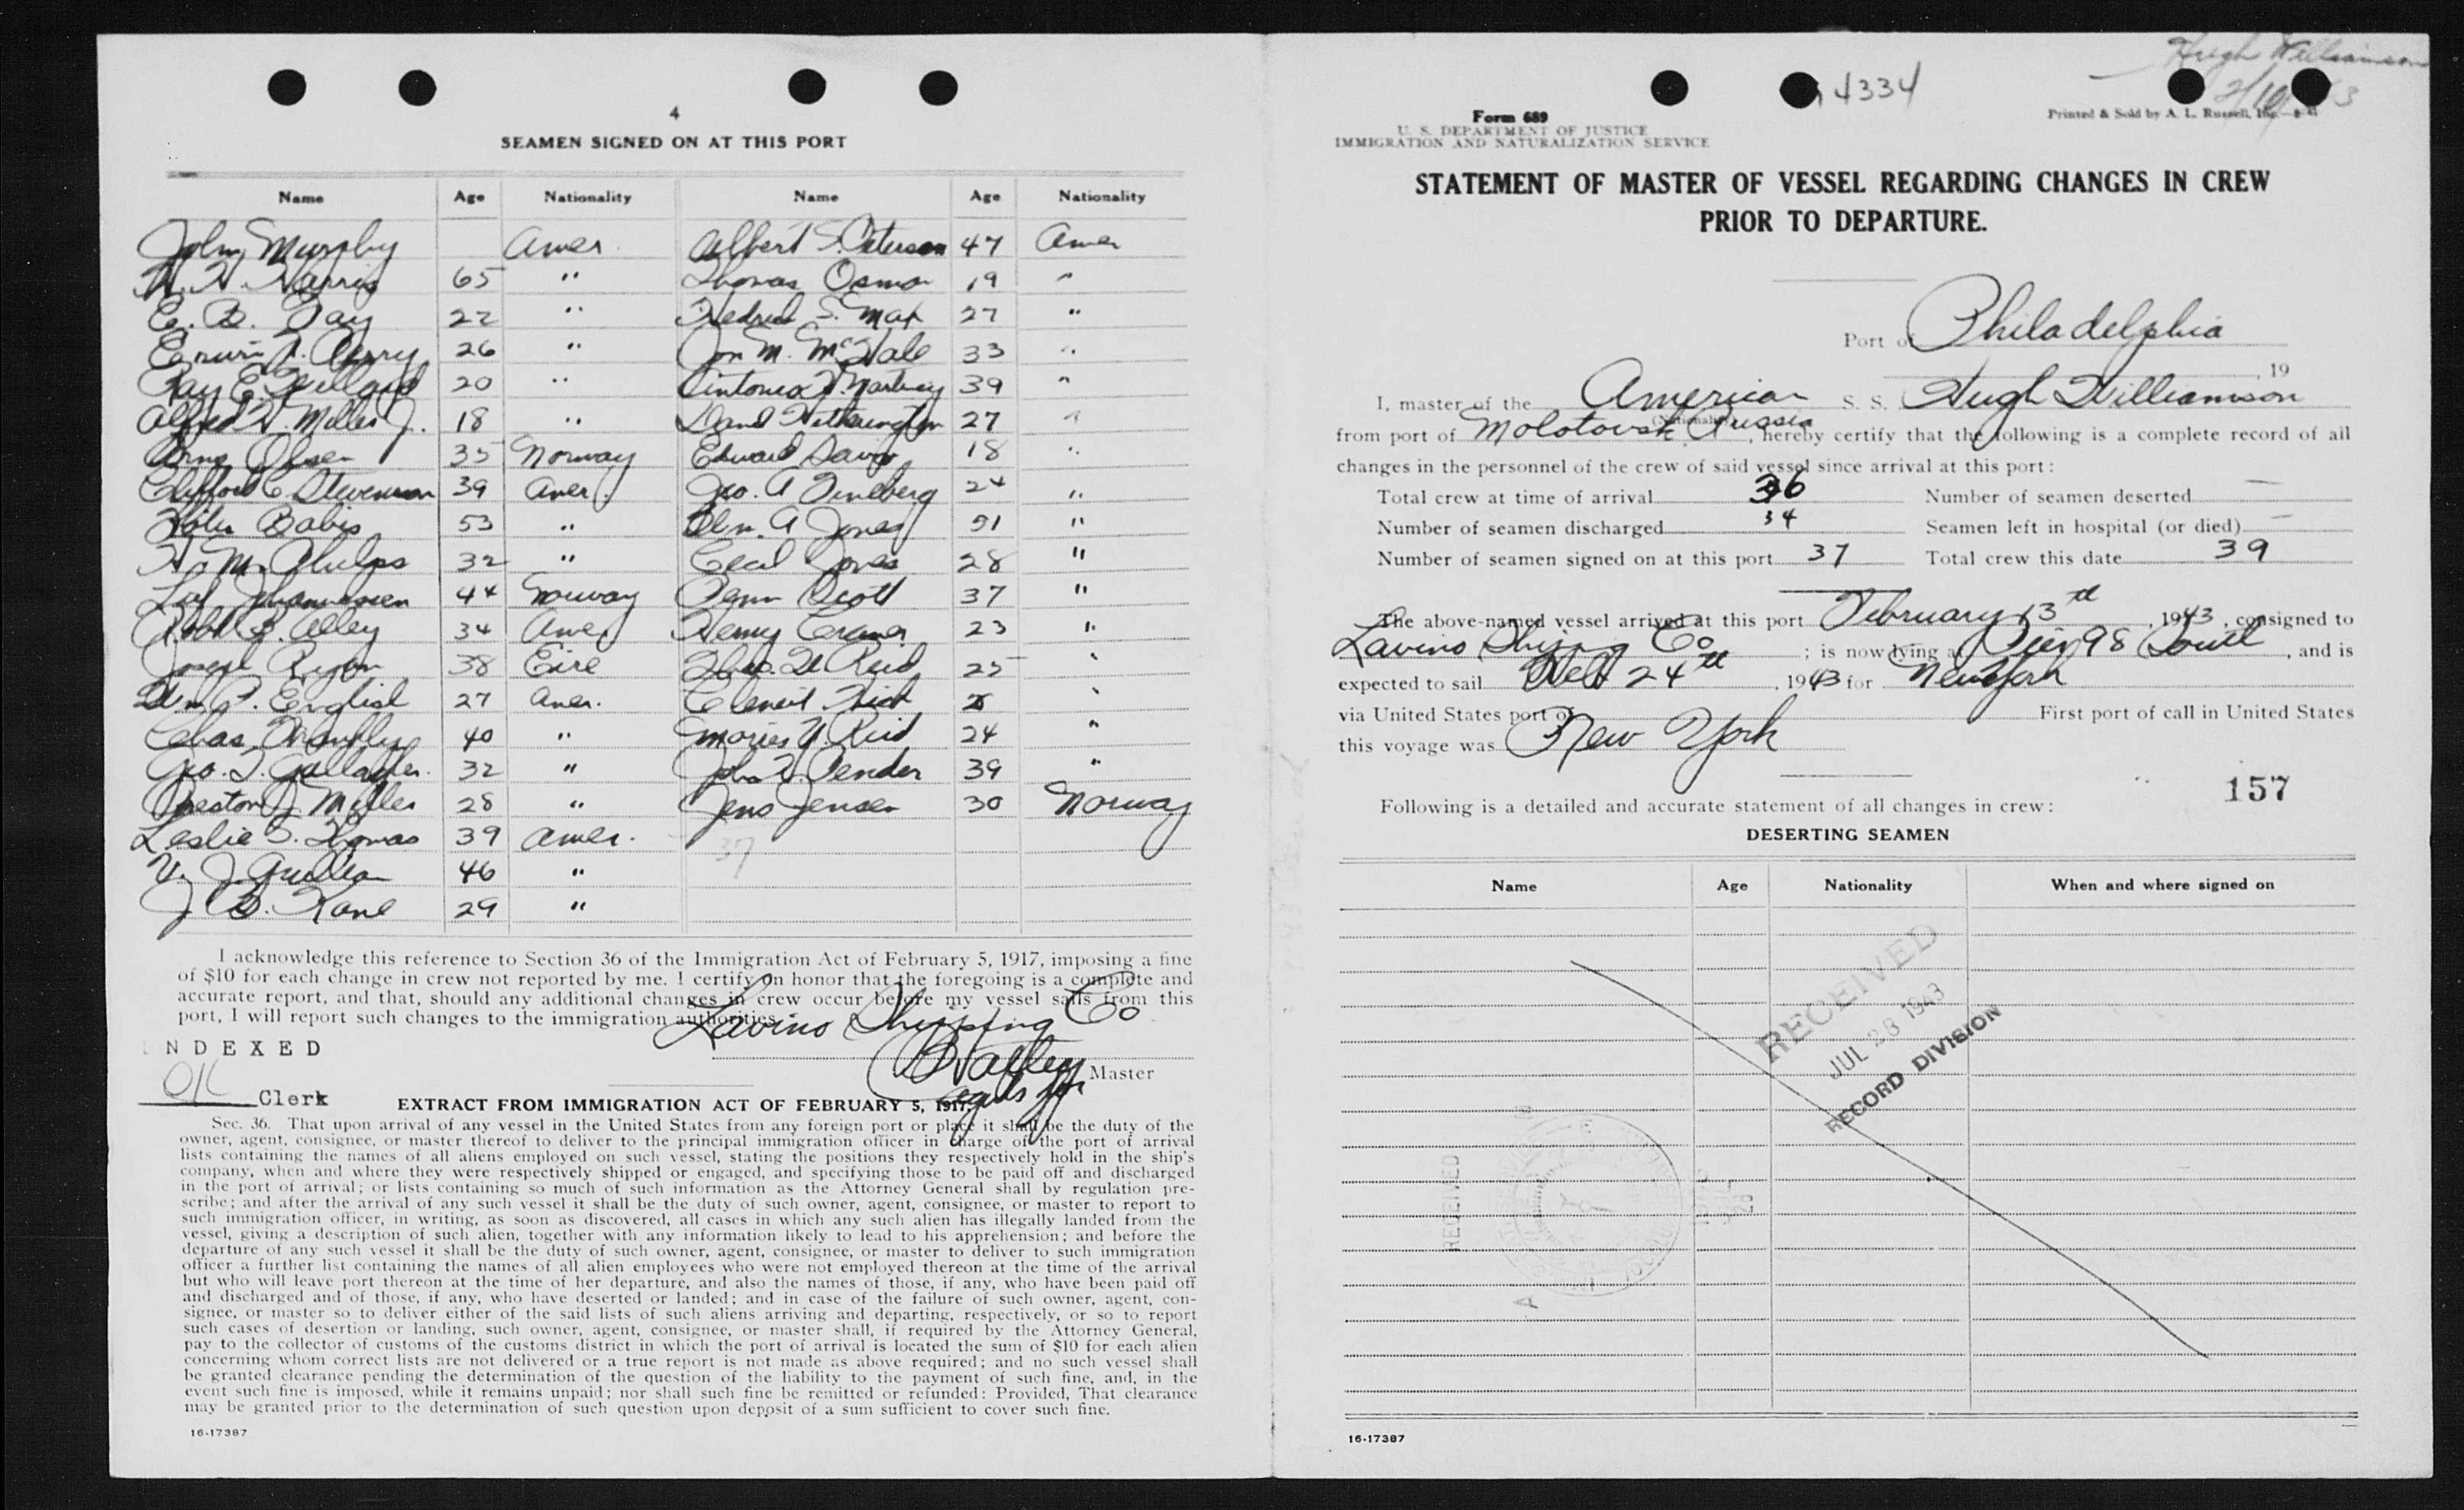 4
SEAMEN SIGNED ON AT THIS PORT
Name Age Nationality Name Age Nationality
John Murphy Amer. Albert S. Peterson 47 Amer
H. Harris 65 " Thomas Osmo 19 "
E. B. Day 22 " S. Max 27 "
A. Perry 26 " M. McHale 33 "
Ray E. Willard 20 " 39 "
Alfred H. Miller Jr. 18 " David Hetherington 27 "
Arne Olsen 35 Norway Edward 18 "
Clifford C Stevenson 39 Amer. Geo. A Fineberg 24 "
Babis 53 " A Jones 51 "
H. M. Phelps 32 " Cecil Jones 28 "
Leif Johannessen 44 Norway Penn Scott 37 "
Robt P. Alley 34 Amer Henry Cramer 23 "
Joseph Ryan 38 Eire Reid 25 "
Wm. P. English 27 Amer. "
Chas. 40 " Reid 24 "
Geo. T. Gallagher. 32 " John W. Pender 39 "
Preston J. Miller 28 " Jens Jensen 30 Norway
Leslie S. Thomas 39 Amer. 37
J. 46 "
J. B. Kane 29 "
I acknowledge this reference to Section 36 of the Immigration Act of February 5, 1917, imposing a fine
of $10 for each change in crew not reported by me. I certify on honor that the foregoing is a complete and
accurate report, and that, should any additional changes in crew occur before my vessel sails from this
port, I will report such changes to the immigration authorities.
Lavino Shipping Co
Master
NDEXED
OK Clerk
EXTRACT FROM IMMIGRATION ACT OF FEBRUARY 5, 1917.
Sec. 36. That upon arrival of any vessel in the United States from any foreign port or place it shall be the duty of the
owner, agent, consignee, or master thereof to deliver to the principal immigration officer in charge of the port of arrival
lists containing the names of all aliens employed on such vessel, stating the positions they respectively hold in the ship's
company, when and where they were respectively shipped or engaged, and specifying those to be paid off and discharged
in the port of arrival; or lists containing so much of such information as the Attorney General shall by regulation pre-
scribe; and after the arrival of any such vessel it shall be the duty of such owner, agent, consignee, or master to report to
such immigration officer, in writing, as soon as discovered, all cases in which any such alien has illegally landed from the
vessel, giving a description of such alien, together with any information likely to lead to his apprehension; and before the
departure of any such vessel it shall be the duty of such owner, agent, consignee, or master to deliver to such immigration
officer a further list containing the names of all alien employees who were not employed thereon at the time of the arrival
but who will leave port thereon at the time of her departure, and also the names of those, if any, who have been paid off
and discharged and of those, if any, who have deserted or landed; and in case of the failure of such owner, agent, con-
signee, or master so to deliver either of the said lists of such aliens arriving and departing, respectively, or so to report
such cases of desertion or landing, such owner, agent, consignee, or master shall, if required by the Attorney General,
pay to the collector of customs of the customs district in which the port of arrival is located the sum of $10 for each alien
concerning whom correct lists are not delivered or a true report is not made as above required; and no such vessel shall
be granted clearance pending the determination of the question of the liability to the payment of such fine, and, in the
event such fine is imposed, while it remains unpaid; nor shall such fine be remitted or refunded: Provided, That clearance
may be granted prior to the determination of such question upon deposit of a sum sufficient to cover such fine.
16-17387
Hugh Williamson
4334
Form 689
U. S. DEPARTMENT OF JUSTICE
IMMIGRATION AND NATURALIZATION SERVICE
Printed & Sold by A. L. Russell, Inc.
STATEMENT OF MASTER OF VESSEL REGARDING CHANGES IN CREW
PRIOR TO DEPARTURE.
Port of Philadelphia
19
I, master of the American S. S. Hugh Williamson
from port of Molotovsk Russia, hereby certify that the following is a complete record of all
changes in the personnel of the crew of said vessel since arrival at this port:
Total crew at time of arrival 36 Number of seamen deserted —
Number of seamen discharged 34 Seamen left in hospital (or died) —
Number of seamen signed on at this port 37 Total crew this date 39
The above-named vessel arrived at this port February 13th, 1943, consigned to
Lavino Shipping Co; is now lying at Pier 98 South, and is
expected to sail Feb 24th, 1943 for New York
via United States port of First port of call in United States
this voyage was New York
157
Following is a detailed and accurate statement of all changes in crew:
DESERTING SEAMEN
Name Age Nationality When and where signed on
RECEIVED
JUL 28 1943
RECORD DIVISION
RECEIVED
16-17387